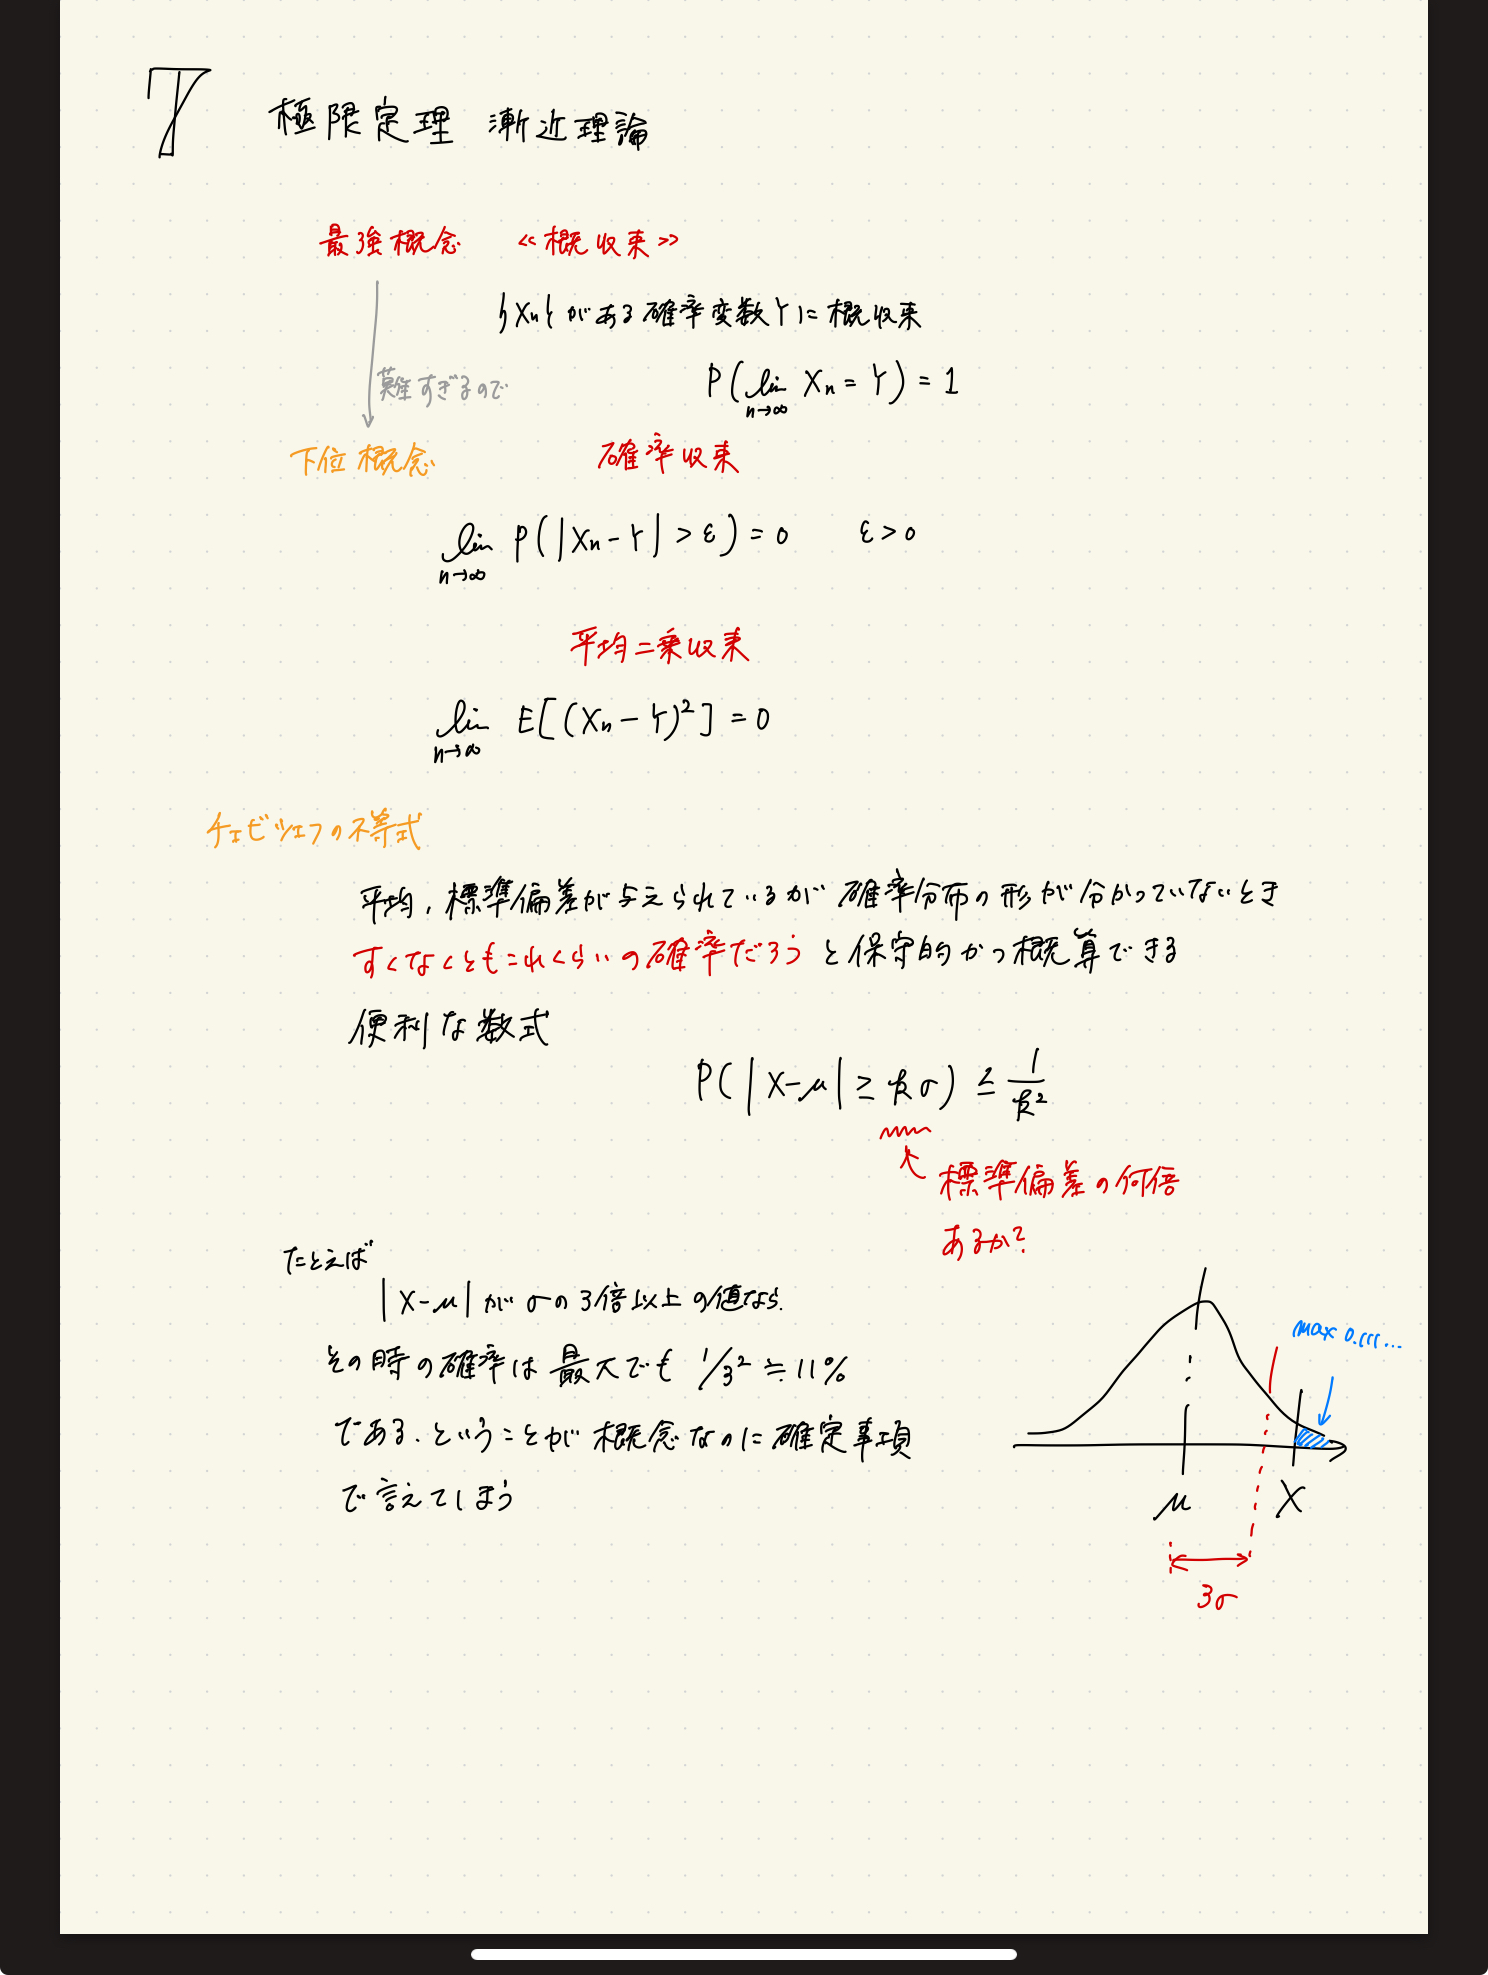 7 極限定理 漸近理論
最強概念 《概収束》
{Xn}がある確率変数Yに概収束
難すぎるので
P(lim Xn = Y) = 1
n→∞
下位概念 確率収束
lim P(|Xn - Y| > ε) = 0 ε > 0
n→∞
平均二乗収束
lim E[(Xn - Y)²] = 0
n→∞
チェビシェフの不等式
平均,標準偏差が与えられているが確率分布の形が分かっていないとき
すくなくともこれくらいの確率だろうと保守的かつ概算できる
便利な数式
P(|X-μ| ≥ kσ) ≤ 1/k²
標準偏差の何倍
あるか?
たとえば
|X-μ|がσの3倍以上の値なら.
その時の確率は最大でも 1/3² ≒ 11%
である.ということが概念なのに確定事項
で言えてしまう
max 0.111...
μ X
3σ